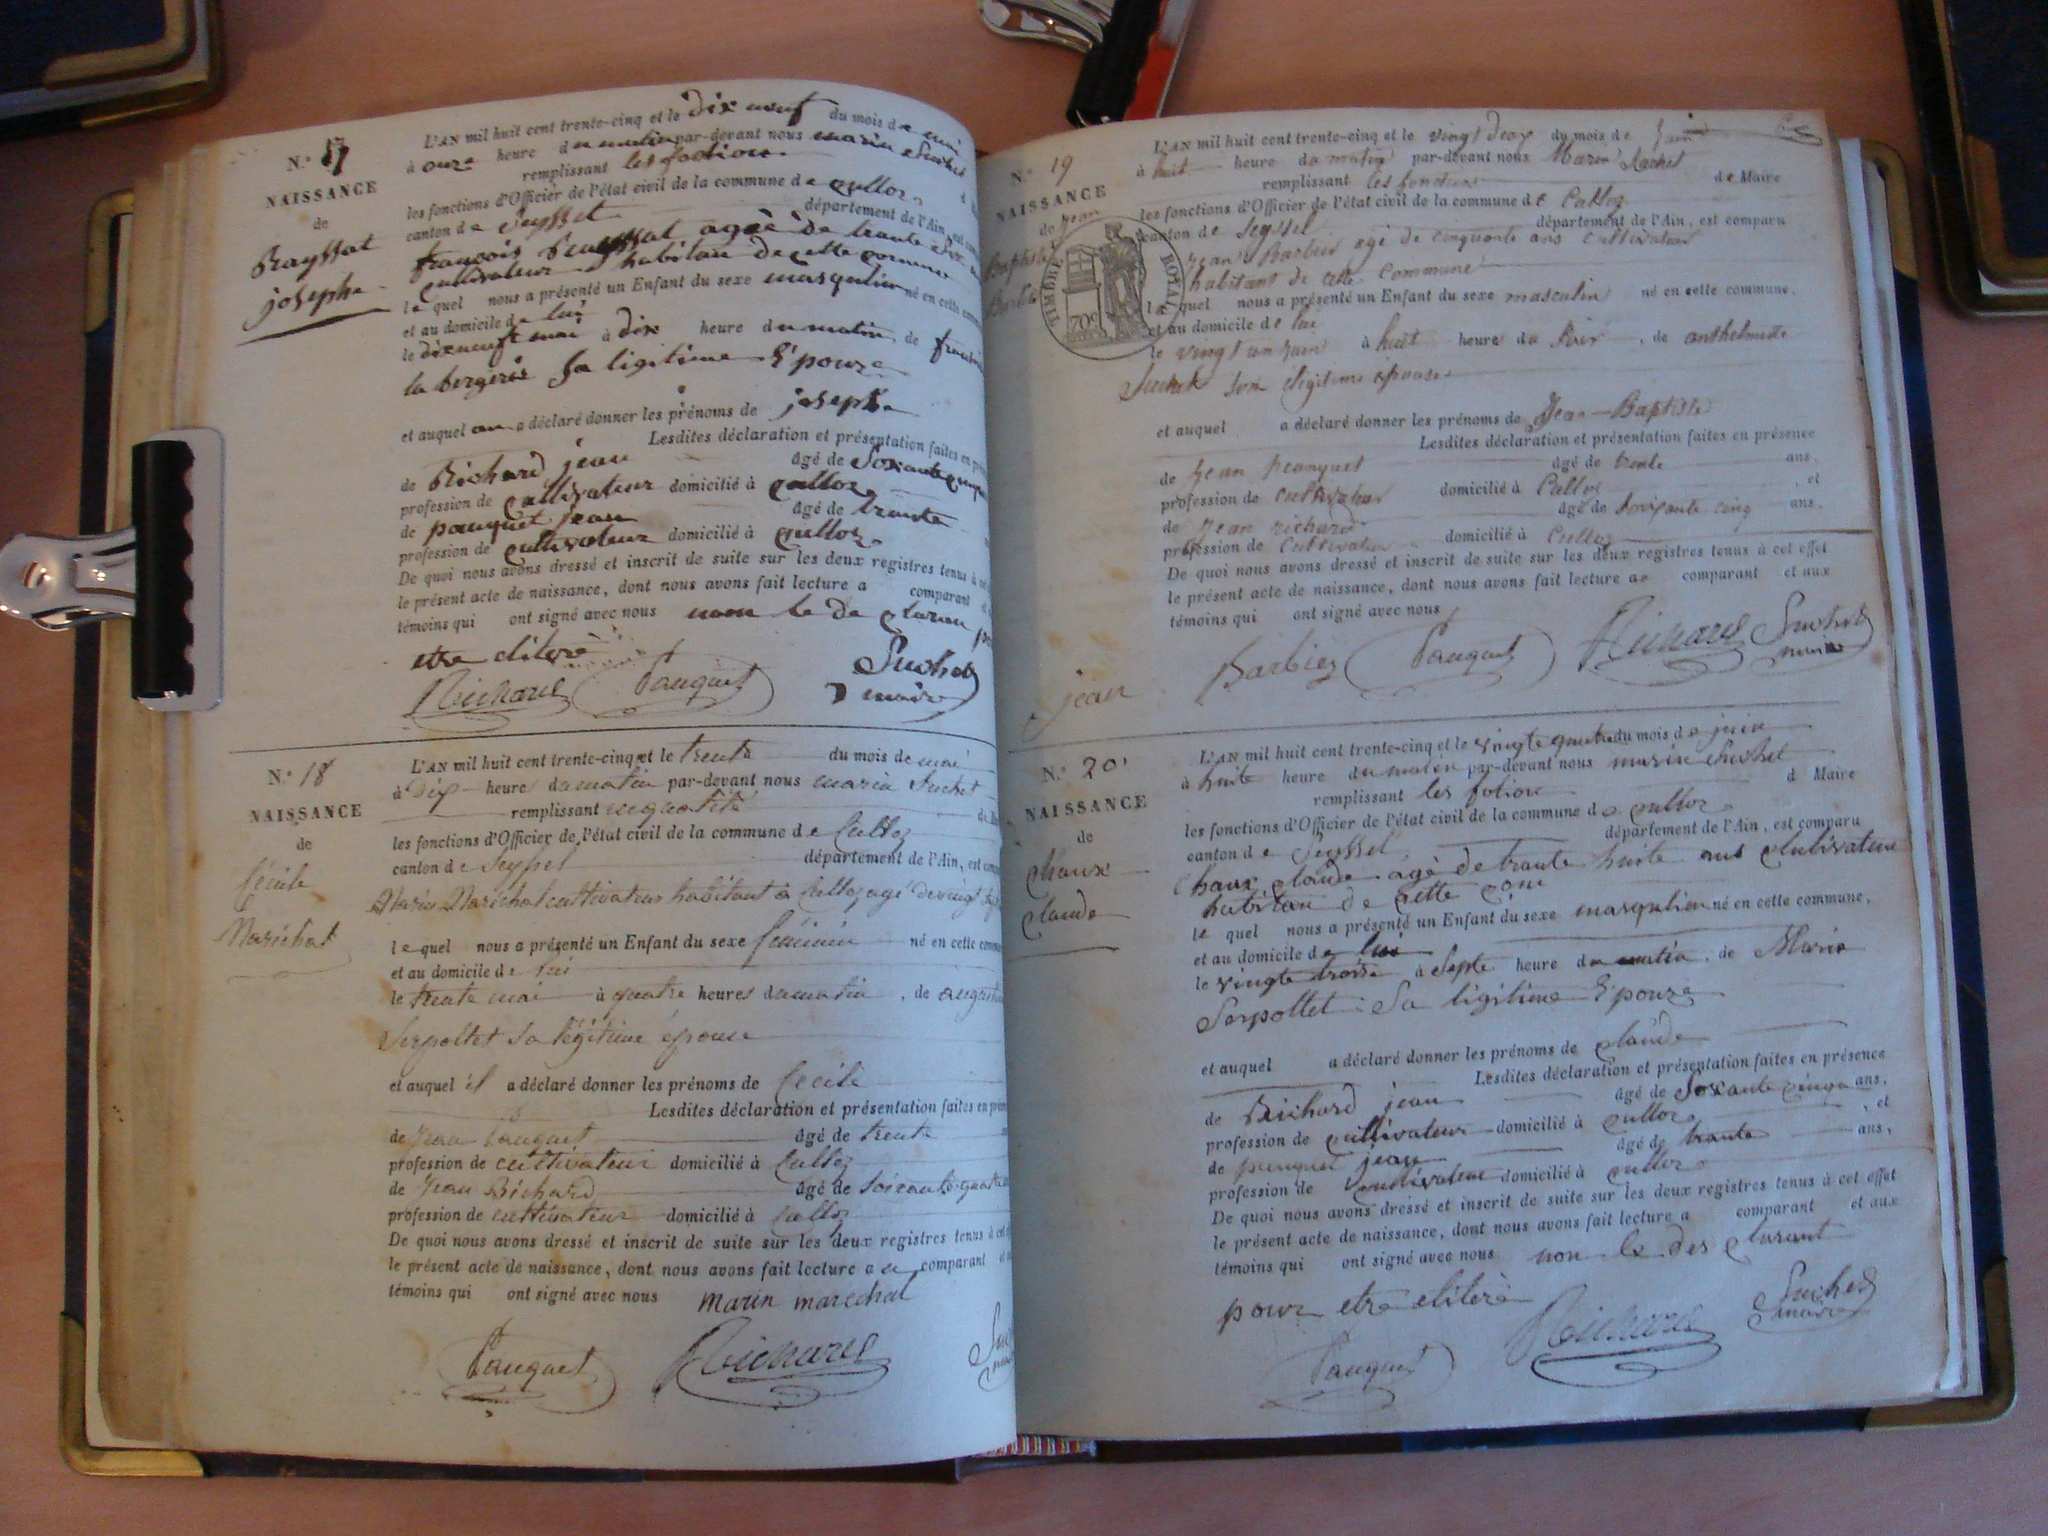 N.° 17
NAISSANCE
de
Brayssat
josephe
L'AN mil huit cent trente-cinq et le dix neuf du mois de mai
à onze heure du matin par-devant nous marin Suchet
remplissant les fotions
les fonctions d'Officier de l'état civil de la commune de Culloz
canton de Seyssel département de l'Ain, est
françois agèè de trante
cultivateur habitan de cette commune
lequel nous a présenté un Enfant du sexe masqulien né en cette
et au domicile de lui
le dixneuft mai à dix heure du matin de
la bergerie Sa ligitime Epouze
et auquel a déclaré donner les prénoms de josephe
Lesdites déclaration et présentation faites en
de Richard jean âgé de Soxante
profession de cultivateur domicilié à Culloz
de pauquet jean âgé de trante
profession de cultivateur domicilié à Culloz
De quoi nous avons dressé et inscrit de suite sur les deux registres tenus à
le présent acte de naissance, dont nous avons fait lecture a comparant
témoins qui ont signé avec nous non le de claran
etre eliterè
Richard Pauquet Suchet
maire
N.° 18
NAISSANCE
de
Cécile
Maréchal
L'AN mil huit cent trente-cinq et le trente du mois de mai
à dix heure du matin par-devant nous marin Suchet
remplissant en qualité
les fonctions d'Officier de l'état civil de la commune de Culloz
canton de Seyssel département de l'Ain, est
Marin Maréchal cultivateur habitant à Culloz agé de vingt
lequel nous a présenté un Enfant du sexe féminin né en cette
et au domicile de lui
le trente mai à quatre heures du matin, de
Serpollet sa légitime épouse
et auquel il a déclaré donner les prénoms de Cécile
Lesdites déclaration et présentation faites en
de Jean Pauquet âgé de trente
profession de cultivateur domicilié à Culloz
de Jean Richard âgé de soixante-quatre
profession de cultivateur domicilié à Culloz
De quoi nous avons dressé et inscrit de suite sur les deux registres tenus à
le présent acte de naissance, dont nous avons fait lecture au comparant
témoins qui ont signé avec nous marin marechal
Pauquet Richard
N.° 19
NAISSANCE
de jean
Baptiste
TIMBRE ROYAL
70c
L'AN mil huit cent trente-cinq et le vingt deux du mois de juin
à huit heure du matin par-devant nous Marin Suchet
remplissant les fonctions de Maire
les fonctions d'Officier de l'état civil de la commune de Culloz
canton de Seyssel département de l'Ain, est comparu
jean Barbier agé de cinquante ans cultivateur
habitant de cette commune
lequel nous a présenté un Enfant du sexe masculin né en cette commune,
et au domicile de lui
le vingt un juin à huit heure du soir, de anthelmette
Suchet son légitime épouse
et auquel a déclaré donner les prénoms de Jean-Baptiste
Lesdites déclaration et présentation faites en présence
de jean Peauquet âgé de trente ans,
profession de cultivateur domicilié à Culloz, et
de jean richard âgé de soixante cinq ans,
profession de cultivateur domicilié à Culloz
De quoi nous avons dressé et inscrit de suite sur les deux registres tenus à cet effet
le présent acte de naissance, dont nous avons fait lecture au comparant et aux
témoins qui ont signé avec nous
jean Barbier Pauquet Richard Suchet
maire
N.° 20
NAISSANCE
de
Chaux
claude
L'AN mil huit cent trente-cinq et le vingte quatre du mois de juin
à huite heure du maten par-devant nous marin Suchet
remplissant les fotions d Maire
les fonctions d'Officier de l'état civil de la commune de Culloz
canton de Seyssel département de l'Ain, est comparu
Chaux claude agè de trante huite ans clutivateur
habitan de cette com
le quel nous a présenté un Enfant du sexe masqulien né en cette commune,
et au domicile de lui
le vingte troise à Septe heure du matin, de Marie
Serpollet Sa ligitime Epouze
et auquel a déclaré donner les prénoms de claude
Lesdites déclaration et présentation faites en présence
de Richard jean âgé de Soxante cinqu ans,
profession de cultivateur domicilié à Culloz, et
de pauquet jean âgé de trante ans,
profession de cultivateur domicilié à Culloz
De quoi nous avons dressé et inscrit de suite sur les deux registres tenus à cet effet
le présent acte de naissance, dont nous avons fait lecture a comparant et aux
témoins qui ont signé avec nous non le des clarant
pour etre eliterè
Pauquet Richard Suchet
maire